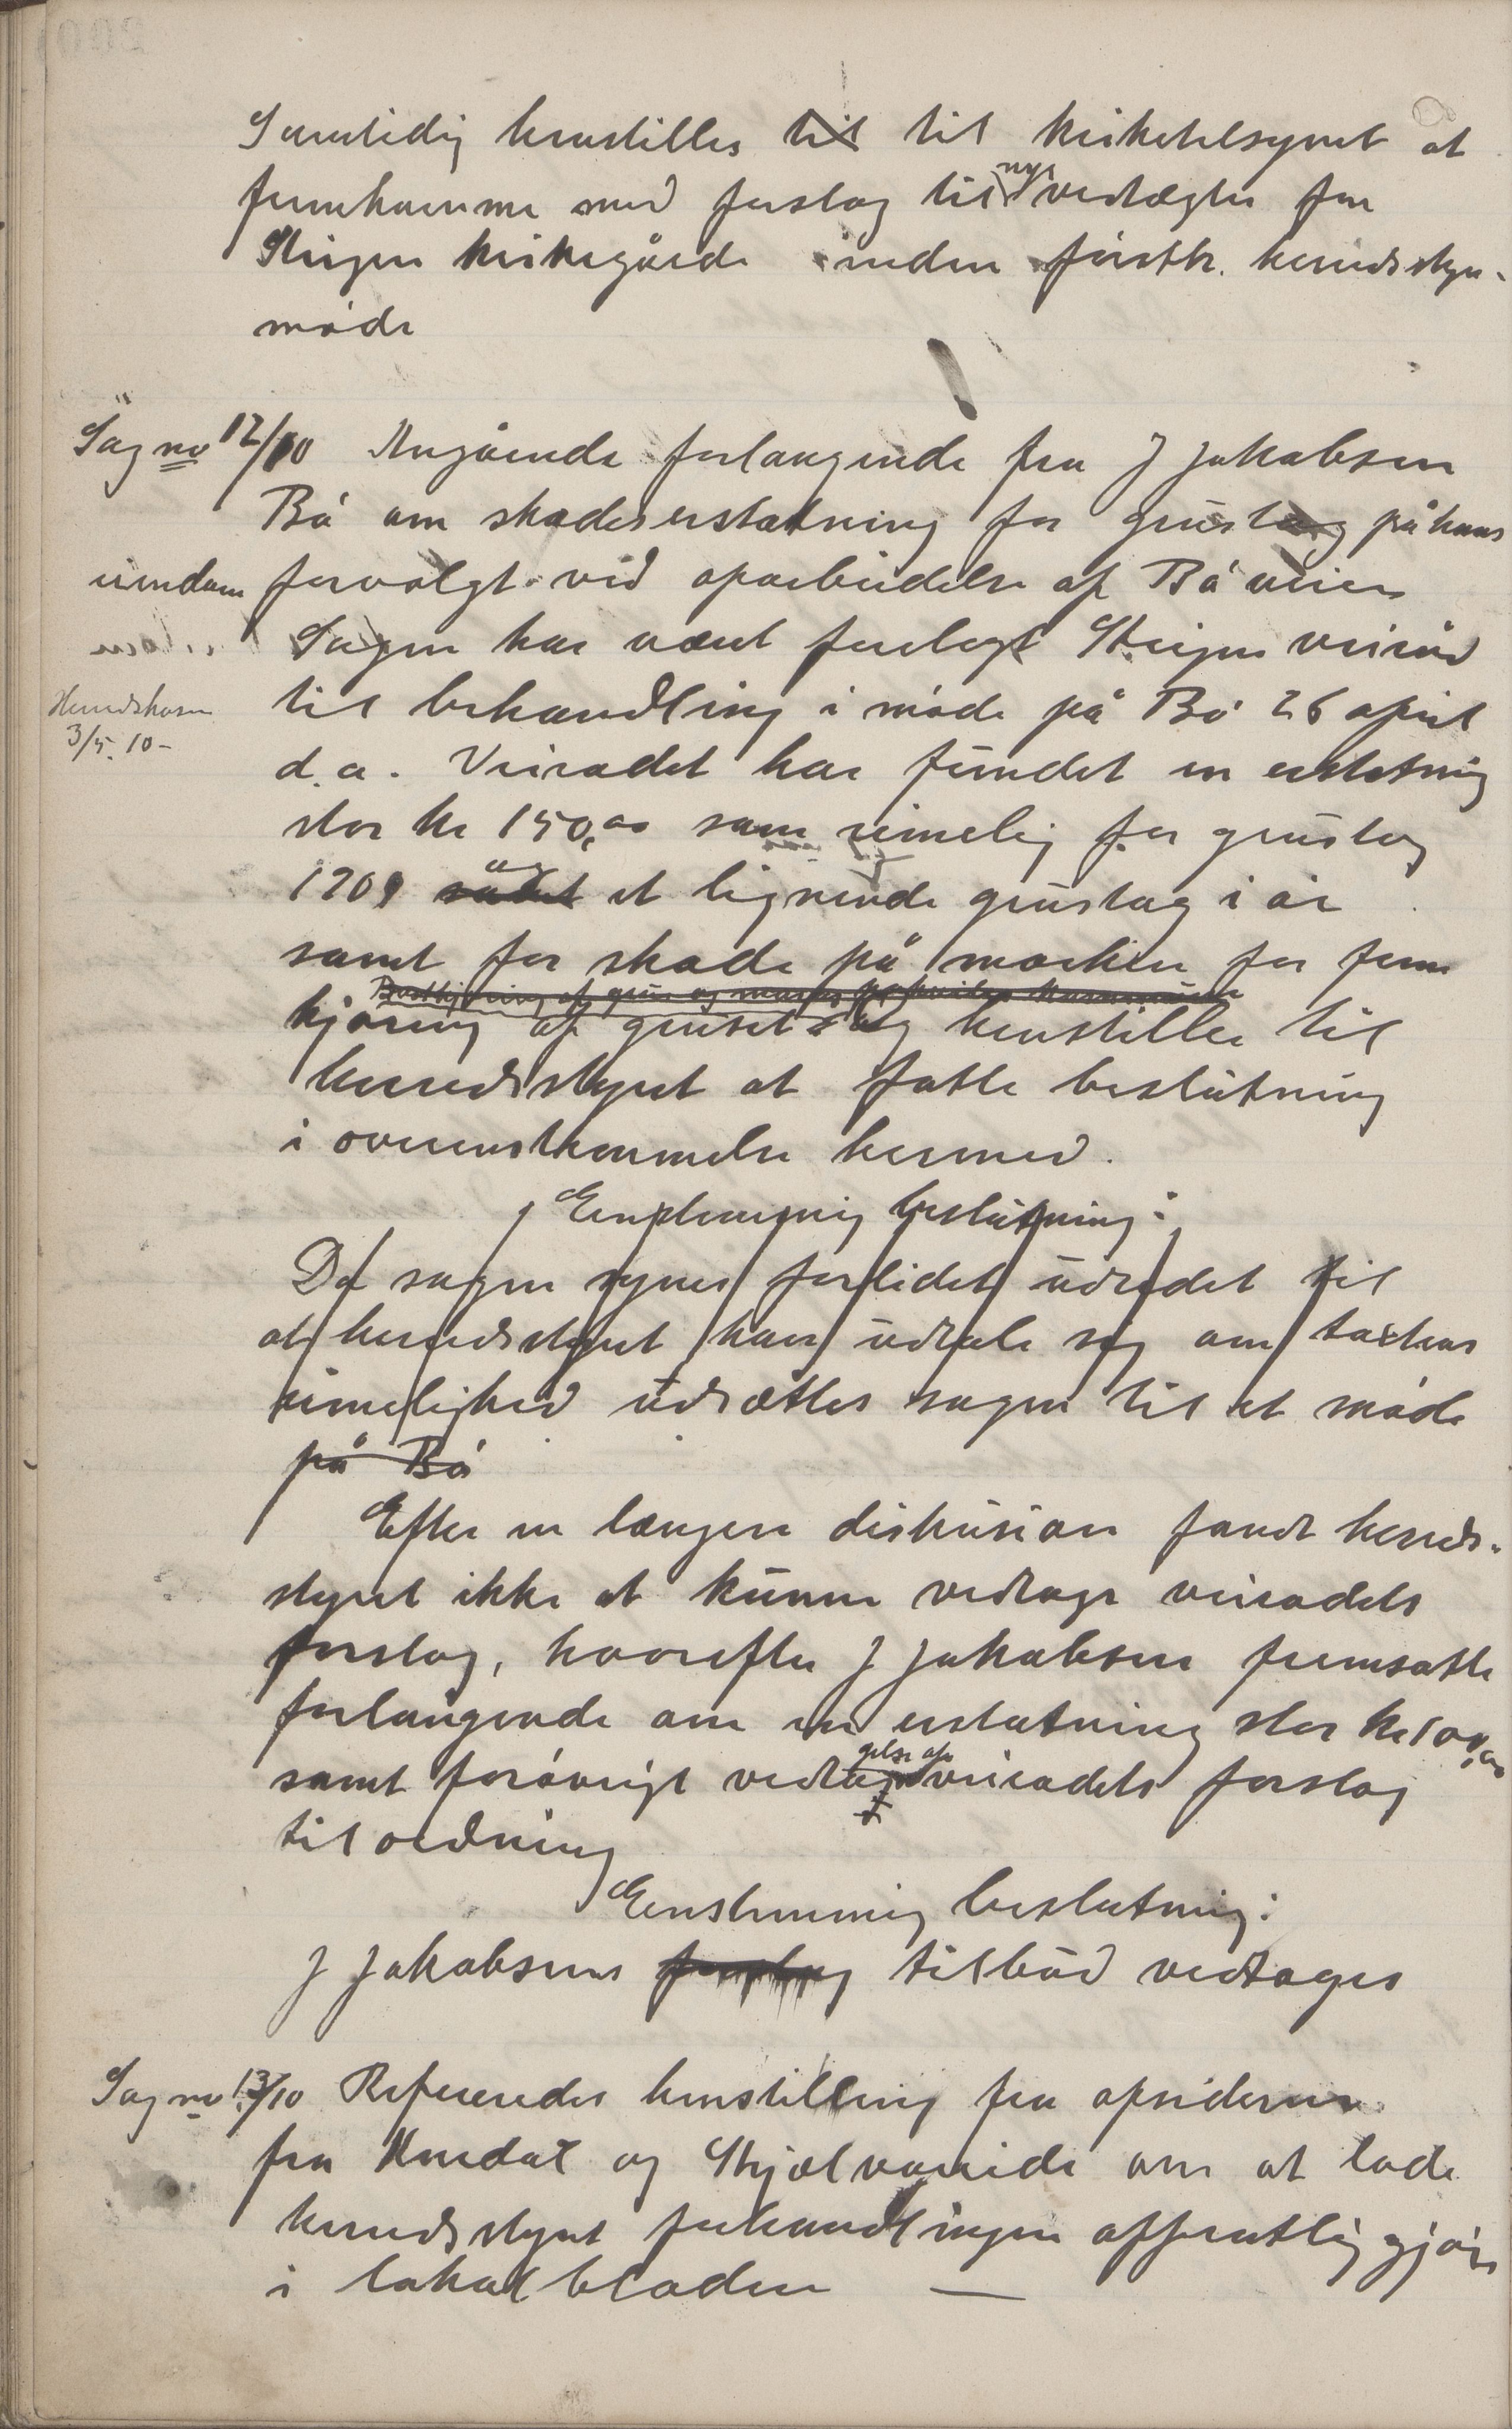 Samtidig henstilles til til kirketilsynet at
fremkomme med forslag til nye vedtægter for
Steigen kirkegårde inden førstk. heredsstyr-
møde
Sag no 12/10 Angående forlangende fra J Jakobsen
Bø om skadeserstatning for grustag på hans
eiendom forvolgt ved oparbeidelse af Bø veien
Sagen har været forelagt Steigen veiråd
til behandling i møde på Bø 26 april
Herredskasse
3/5. 10-
d.a. Veiradet har fundet en erstatning
stor kr 150,00 som rimelig for grustag
1909 og et lignende grustag i år
samt for skade på marken for frem
Bortkjøring af grus og
kjøring af gruset og henstiller til
herredsstyret at fatte beslutning
i overensstemmelse hermed.
Enstemmig beslutning:
Da sagen synes forlidet udredet til
at herredsstyret kan udtale sig om takstens
rimelighed udsættes sagen til et møde
på Bø
Efter en længere diskusion fandt herreds-
styret ikke at kunne vedtage veiradets
forslag, hvorefter J Jakobsen fremsatte
forlangende om en erstatning stor kr 100,00
samt forøvrigt vedtagelse af veiradets forslag
til ordning
Eenstemmig beslutning:
J Jakobsens forslag tilbud vedtages
Sag no 13/10 Refereredes henstilling fra opsidderne
fra og Skjelvareide om at lade
herredsstyret forhandlingen offentlig gjøres
i lokalbladen —